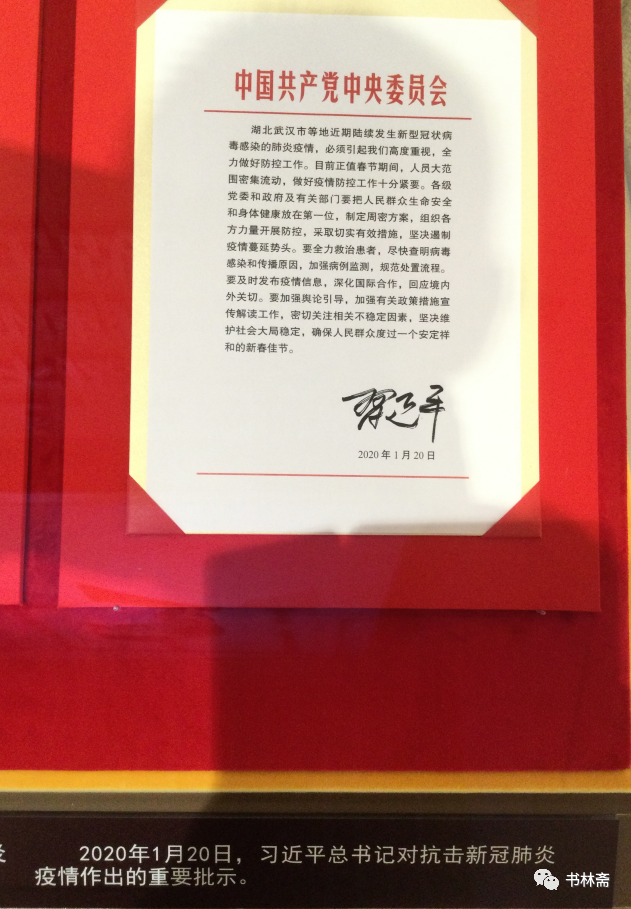 中国共产党中央委员会
湖北武汉市等地近期陆续发生新型冠状病
毒感染的肺炎疫情，必须引起我们高度重视，全
力做好防控工作。目前正值春节期间，人员大范
围密集流动，做好疫情防控工作十分紧要。各级
党委和政府及有关部门要把人民群众生命安全
和身体健康放在第一位，制定周密方案，组织各
方力量开展防控，采取切实有效措施，坚决遏制
疫情蔓延势头。要全力救治患者，尽快查明病毒
感染和传播原因，加强病例监测，规范处置流程。
要及时发布疫情信息，深化国际合作，回应境内
外关切。要加强舆论引导，加强有关政策措施宣
传解读工作，密切关注相关不稳定因素，坚决维
护社会大局稳定，确保人民群众度过一个安定祥
和的新春佳节。
习近平
2020年1月20日
2020年1月20日，习近平总书记对抗击新冠肺炎
疫情作出的重要批示。
书林斋